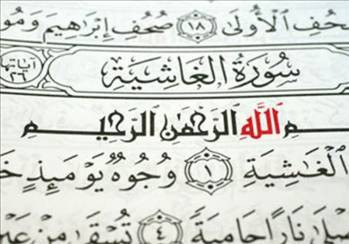 صُحُفِ ٱلْأُولَىٰ ١٨ صُحُفِ إِبْرَٰهِيمَ وَمُو
سُورَةُ الغَاشِيَةِ آيَاتُهَا ٢٦
ـمِ ٱللَّهِ ٱلرَّحْمَٰنِ ٱلرَّحِيمِ
ٱلْغَٰشِيَةِ ١ وُجُوهٌ يَوْمَئِذٍ خَ
ـلَىٰ نَارًا حَامِيَةً ٤ تُسْقَىٰ مِنْ عَيْنٍ